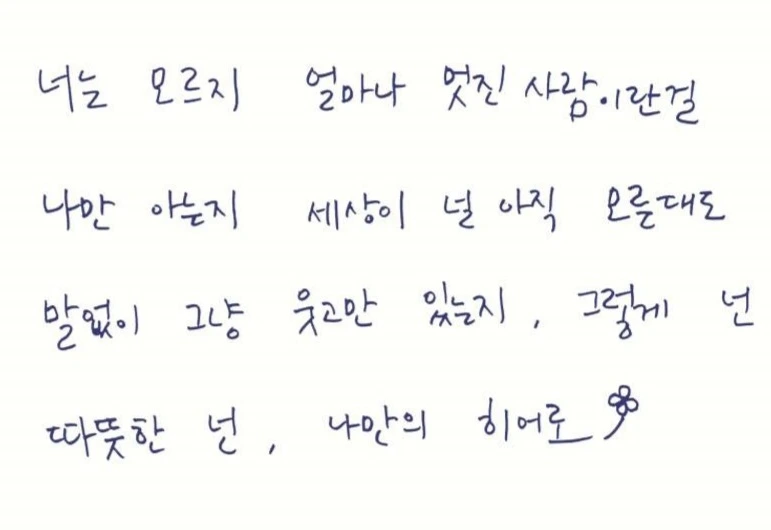 너는 모르지 얼마나 멋진 사람이란걸
나만 아는지 세상이 널 아직 모를대도
말없이 그냥 웃고만 있는지, 그렇게 넌
따뜻한 넌, 나만의 히어로